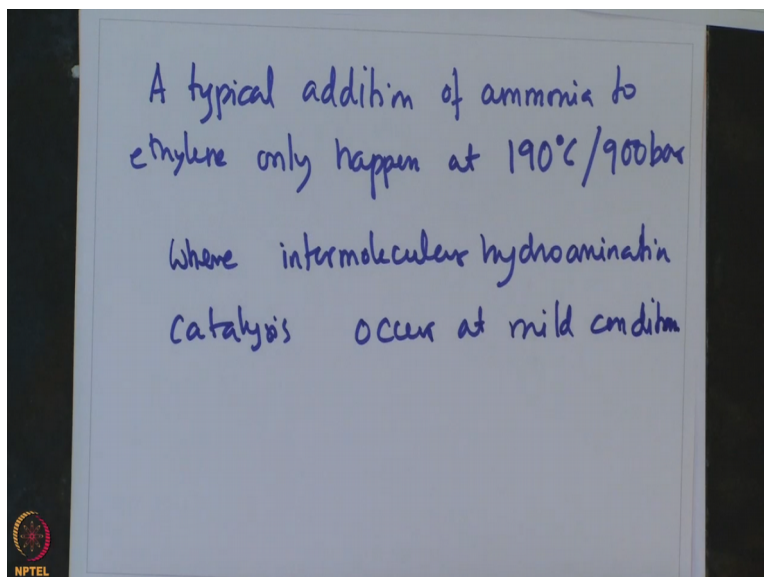 A typical addition of ammonia to
ethylene only happen at 190°C/900bar
Where intermolecular hydroamination
Catalysis occur at mild condition
NPTEL